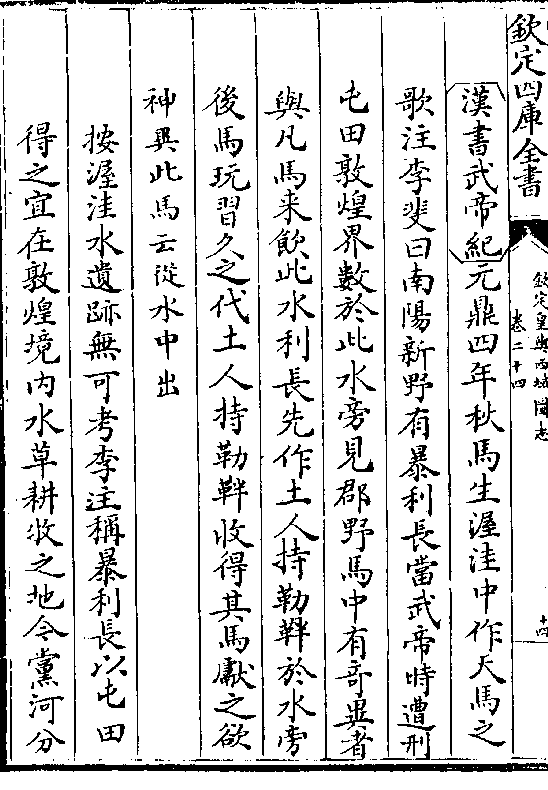 欽定四庫全書
欽定皇輿西域圖志
卷二十四
十四
漢書武帝紀元鼎四年秋馬生渥洼中作天馬之
歌注李斐曰南陽新野有暴利長當武帝時遭刑
屯田敦煌界數於此水旁見郡野馬中有竒異者
與凡馬来飲此水利長先作土人持勒靽於水旁
後馬玩習久之代土人持勒靽收得其馬獻之欲
神異此馬云從水中出
按渥洼水遺跡無可考李注稱暴利長以屯田
得之宜在敦煌境内水草耕牧之地今黨河分